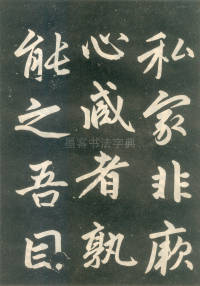 私家非厥
心臧者孰
能之吾目
墨客书法字典